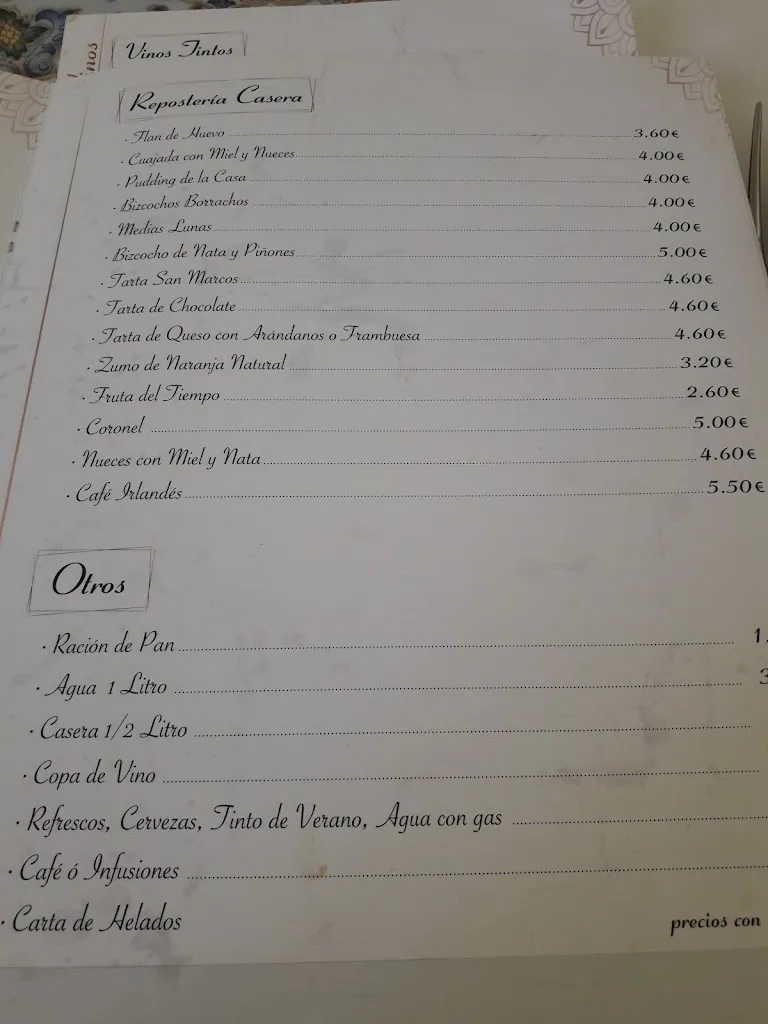 Vinos Tintos
Repostería Casera
· Flan de Huevo 3.60€
· Cuajada con Miel y Nueces 4.00€
· Pudding de la Casa 4.00€
· Bizcochos Borrachos 4.00€
· Medias Lunas 4.00€
· Bizcocho de Nata y Piñones 5.00€
· Tarta San Marcos 4.60€
· Tarta de Chocolate 4.60€
· Tarta de Queso con Arándanos o Frambuesa 4.60€
· Zumo de Naranja Natural 3.20€
· Fruta del Tiempo 2.60€
· Coronel 5.00€
· Nueces con Miel y Nata 4.60€
· Café Irlandés 5.50€
Otros
· Ración de Pan 1.
· Agua 1 Litro 3
· Casera 1/2 Litro
· Copa de Vino
· Refrescos, Cervezas, Tinto de Verano, Agua con gas
· Café ó Infusiones
· Carta de Helados
precios con